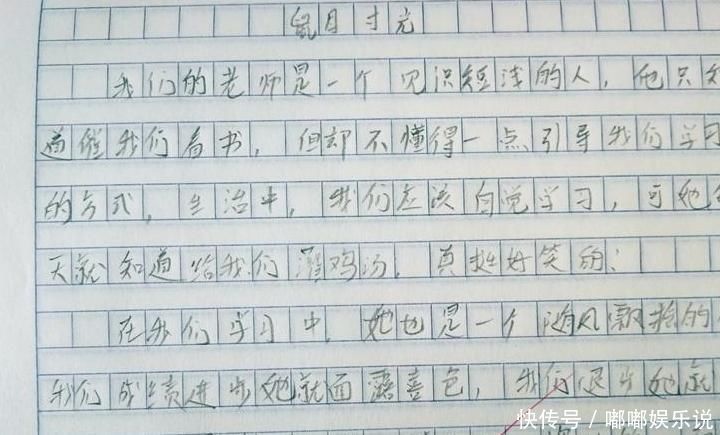 鼠目寸光
我们的老师是一个见识短浅的人，他只知
道催我们看书，但却不懂得一点引导我们学习
的方式，生活中，我们应该自觉学习，可她
天就知道给我们灌鸡汤，真挺好笑的；
在我们学习中，她也是一个随风飘摇的
我们成绩进步她就面露喜色，我们退步她就
快传号／嘟嘟娱乐说